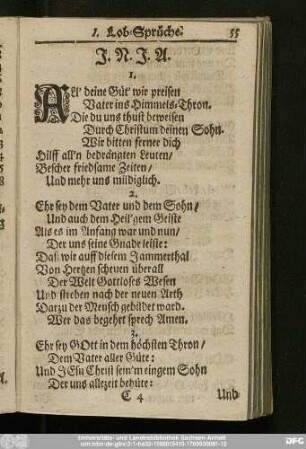 I. Lob-Sprüche. 55
J. N. J. A.
1.
All' deine Güt' wir preisen
Vater ins Himmels-Thron.
Die du uns thust beweisen
Durch Christum deinen Sohn.
Wir bitten ferner dich
Hilff all'n bedrängten Leuten/
Bescher friedsame Zeiten/
Und mehr uns mildiglich.
2.
Ehr sey dem Vater und dem Sohn/
Und auch dem Heil'gem Geiste
Als es im Anfang war und nun/
Der uns seine Gnade leiste:
Daß wir auff diesem Jammerthal
Von Hertzen scheuen überall
Der Welt Gottloses Wesen
Und streben nach der neuen Arth
Darzu der Mensch gebildet ward.
Wer das begehrt sprech Amen.
3.
Ehr sey GOtt in dem höchsten Thron/
Dem Vater aller Güte:
Und JEsu Christ sein'm eingem Sohn
Der uns allezeit behüte:
C 4 Und
Universitäts- und Landesbibliothek Sachsen-Anhalt
DFG